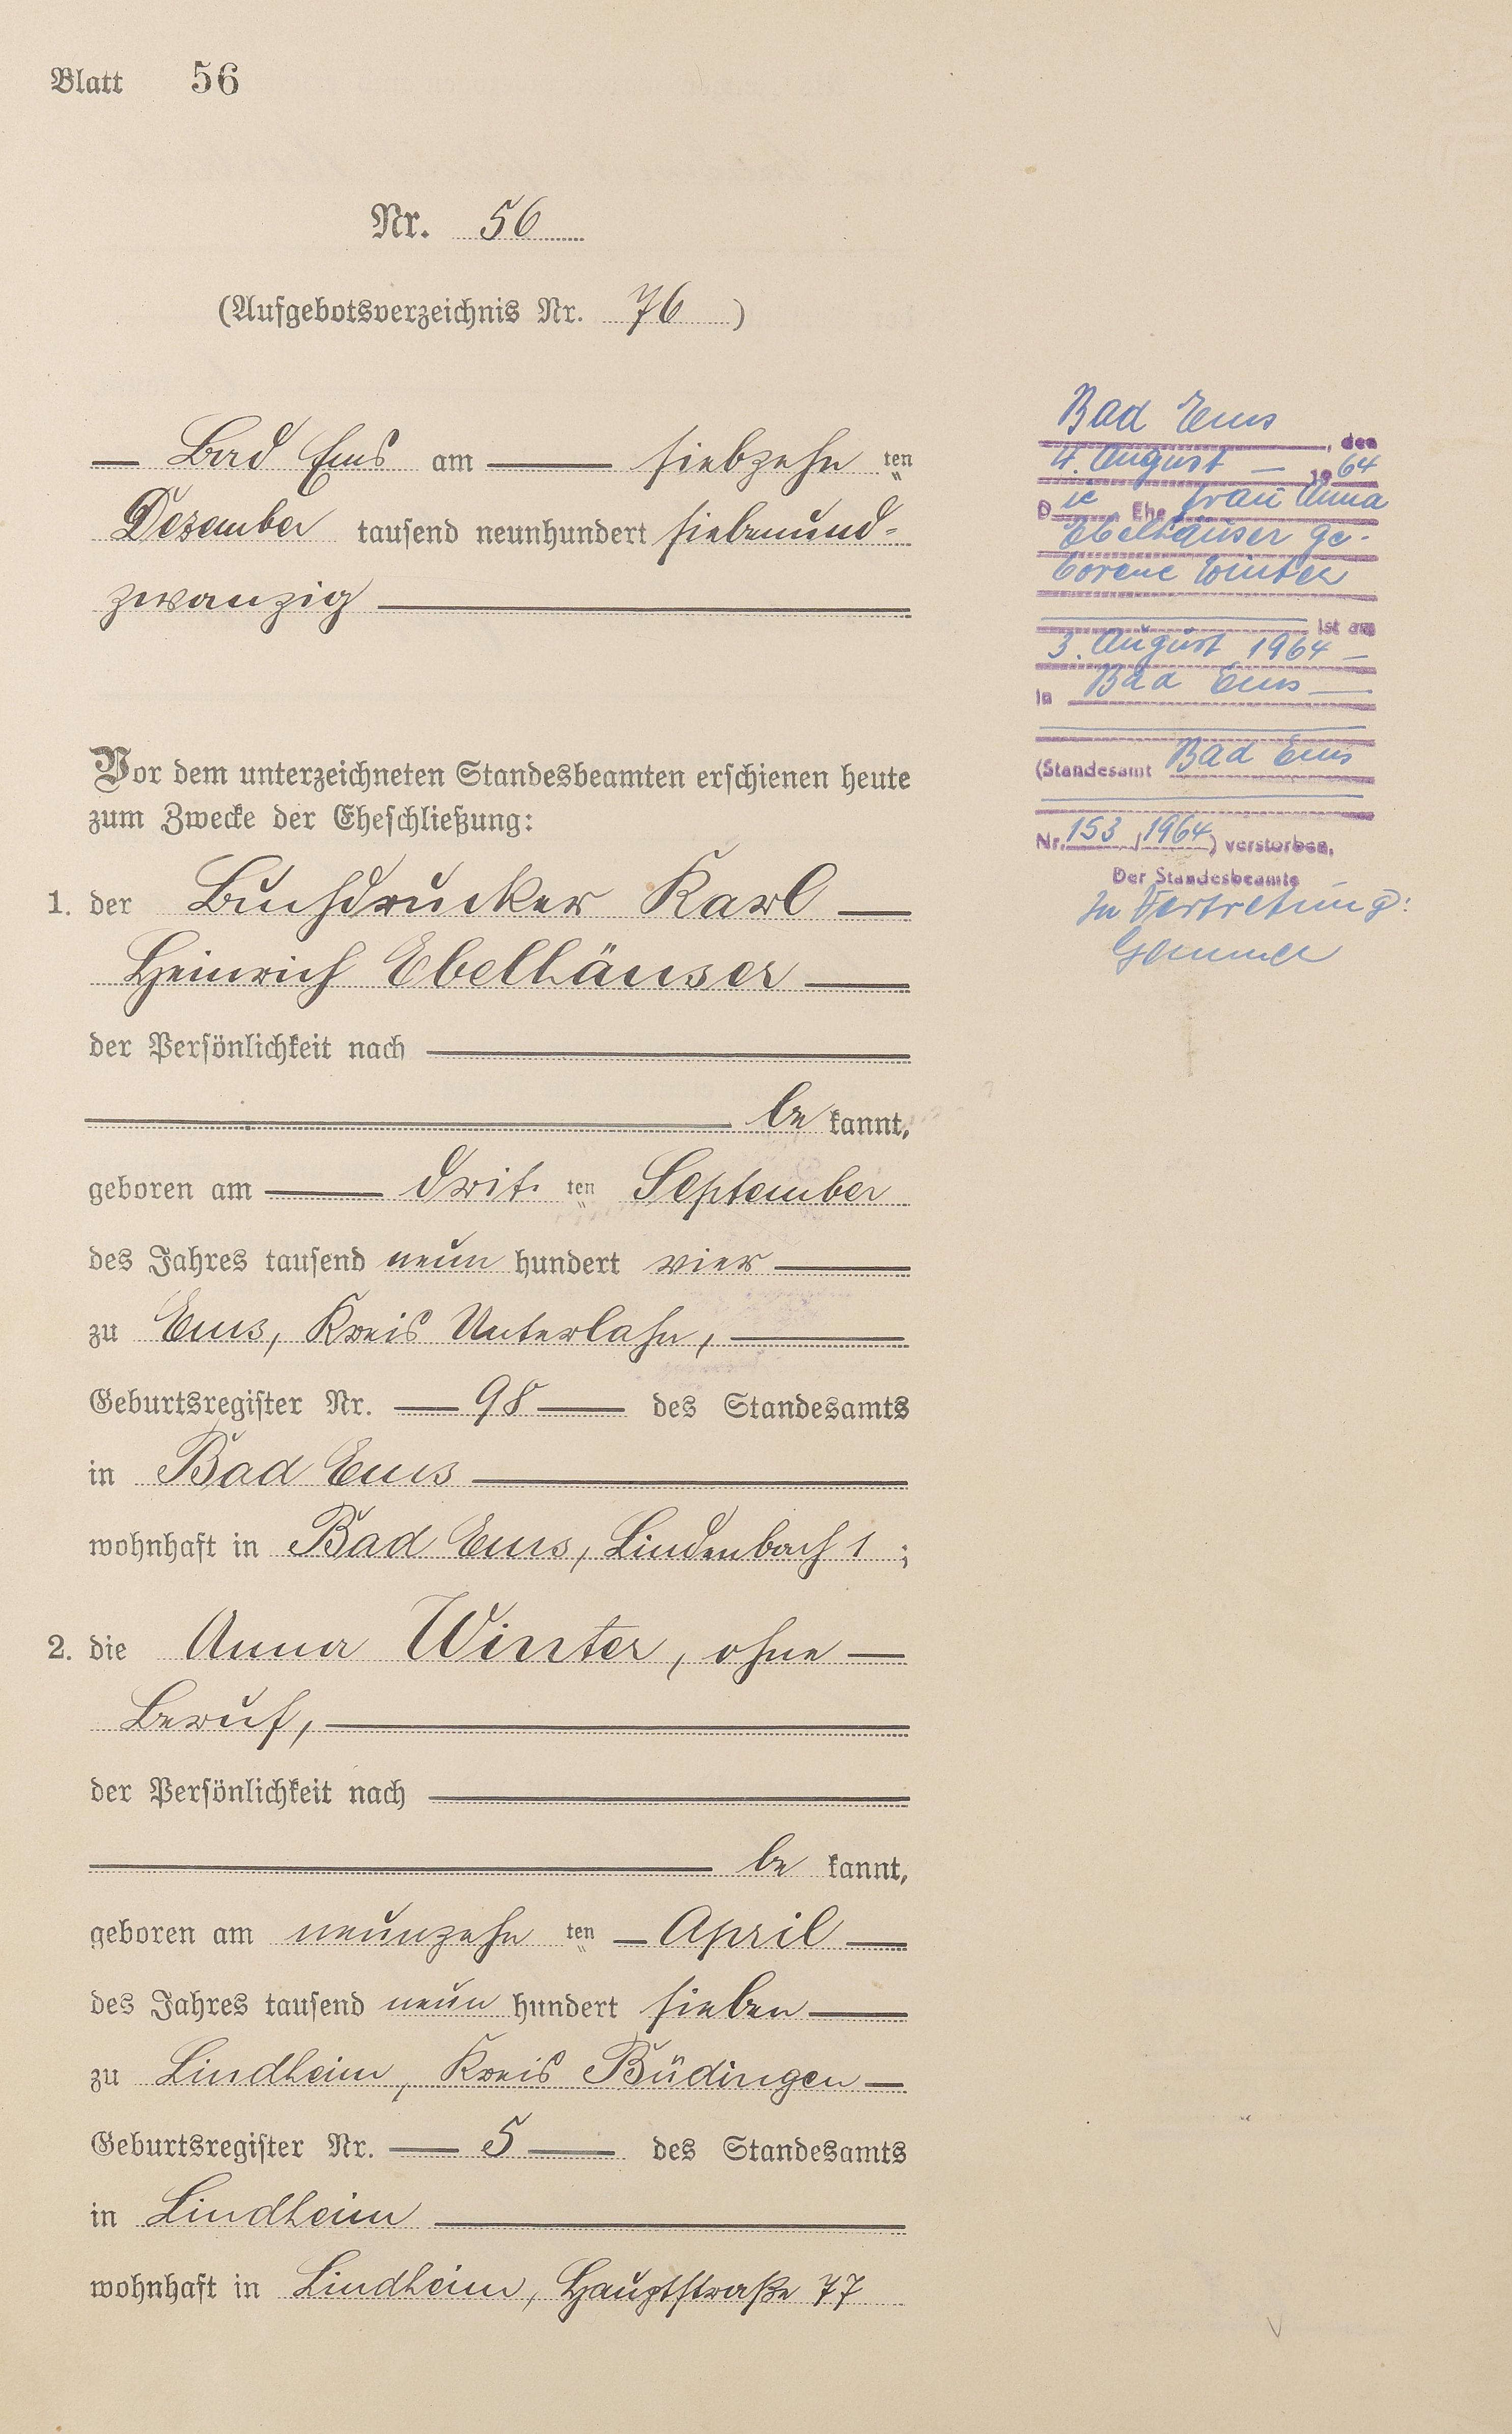 Blatt 56
Nr. 56
(Aufgebotsverzeichnis Nr. 76)
Bad Ems am siebzehn ten
Dezember tausend neunhundert siebenund-
zwanzig
Vor dem unterzeichneten Standesbeamten erschienen heute
zum Zwecke der Eheschließung:
1. der Buchdrucker Karl
Heinrich Ebelhäuser
der Persönlichkeit nach
be kannt,
geboren am drit. ten September
des Jahres tausend neun hundert vier
zu Ems, Kreis Unterlahn,
Geburtsregister Nr. 98 des Standesamts
in Bad Ems
wohnhaft in Bad Ems, Lindenbach 1;
2. die Anna Winter, ohne
Beruf,
der Persönlichkeit nach
be kannt,
geboren am neunzehn ten April
des Jahres tausend neun hundert sieben
zu Lindheim, Kreis Büdingen
Geburtsregister Nr. 5 des Standesamts
in Lindheim
wohnhaft in Lindheim, Hauptstraße 77
Bad Ems, den
4. August 1964
Die Ehefrau Anna
Ebelhäuser ge-
borene Winter
ist am
3. August 1964
in Bad Ems
(Standesamt Bad Ems
Nr. 153/1964) verstorben.
Der Standesbeamte
In Vertretung: